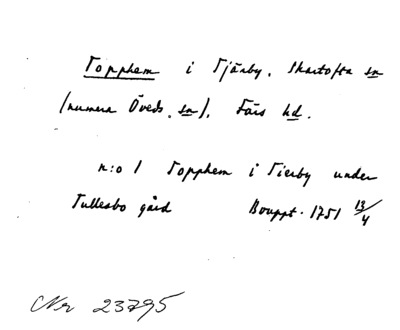 Topphem i Tjärby. Skartofta sn
(numera Öveds. sn), Färs hd.
n:o 1 Topphem i Tierby under
Tullesbo gård Bouppt. 1751 13/4
Nr 23795